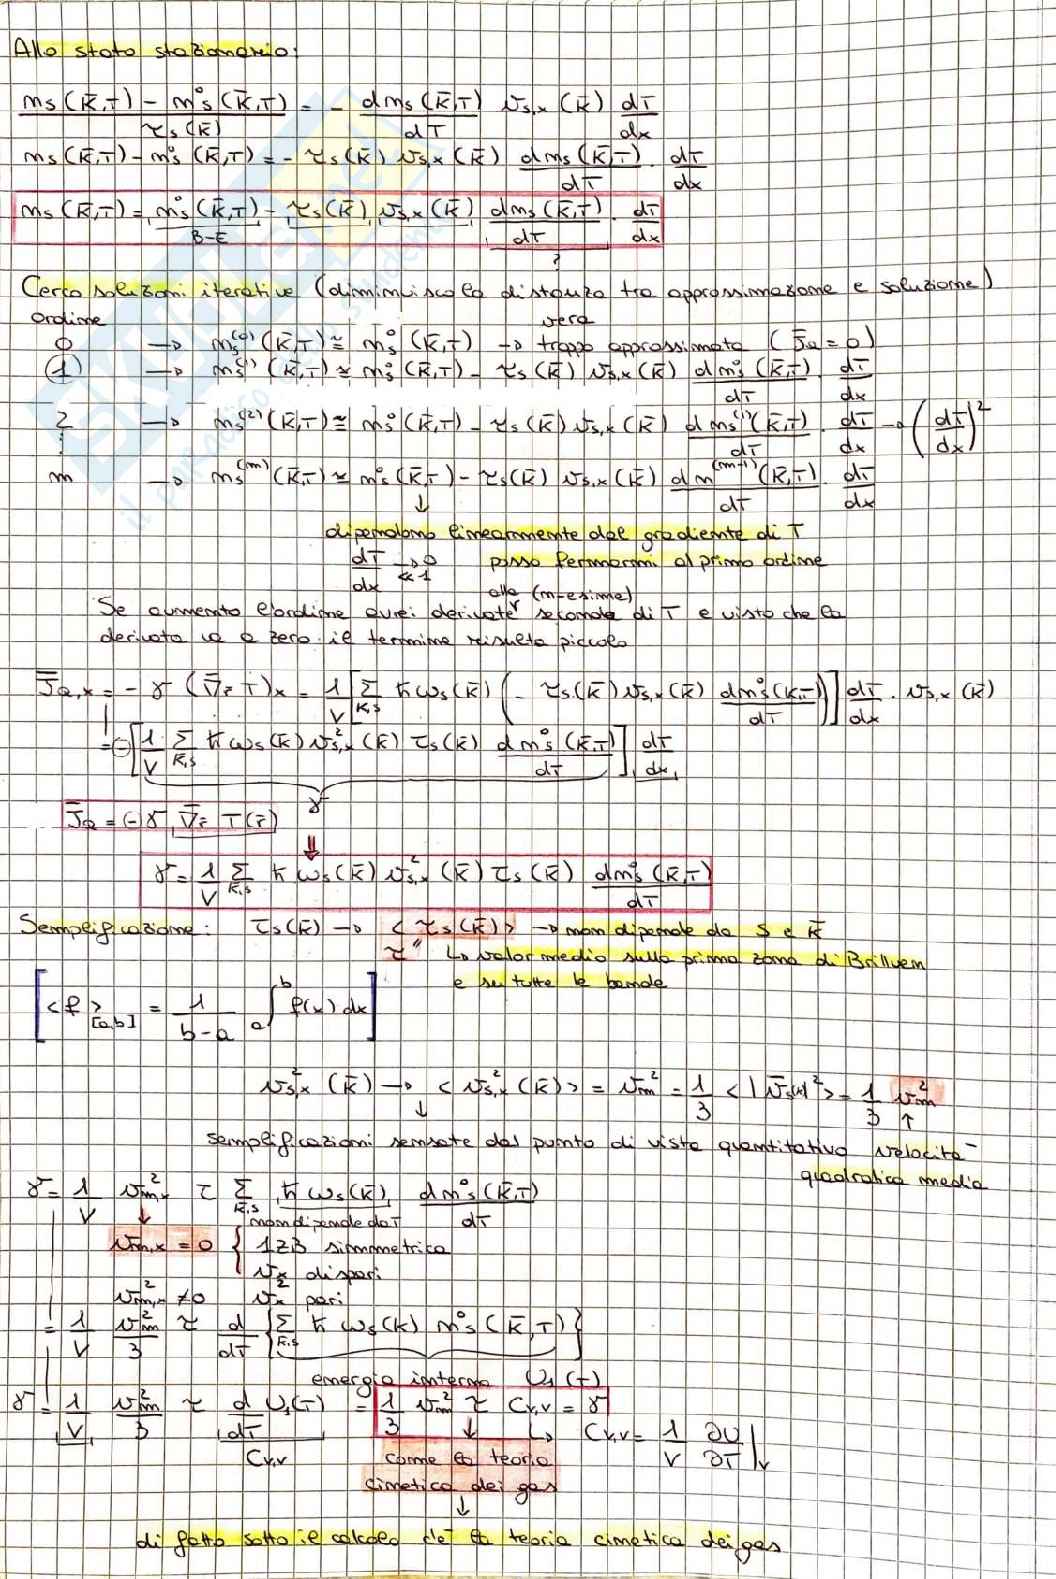 Allo stato stazionario:
ns(k̄,T) - n°s(k̄,T) / τs(k̄) = - dns(k̄,T)/dT vs,x(k̄) dT/dx
ns(k̄,T) - n°s(k̄,T) = - τs(k̄) vs,x(k̄) dns(k̄,T)/dT · dT/dx
ns(k̄,T) = n°s(k̄,T) - τs(k̄) vs,x(k̄) dns(k̄,T)/dT · dT/dx
B-E ?
Cerco soluzioni iterative (diminuisco la distanza tra approssimazione e soluzione)
ordine vera
0 → ns(0)(k̄,T) ≅ n°s(k̄,T) → troppo approssimata (J̄Q = 0)
1 → ns(1)(k̄,T) ≅ n°s(k̄,T) - τs(k̄) vs,x(k̄) dn°s(k̄,T)/dT · dT/dx
2 → ns(2)(k̄,T) ≅ n°s(k̄,T) - τs(k̄) vs,x(k̄) dns(1)(k̄,T)/dT · dT/dx → (dT/dx)²
⋮
n → ns(n)(k̄,T) ≅ n°s(k̄,T) - τs(k̄) vs,x(k̄) dn(n-1)(k̄,T)/dT · dT/dx
↓
dipendono linearmente dal gradiente di T
dT/dx → 0 posso fermarmi al primo ordine
≪1
alla (n-esima)
Se aumento l'ordine avrei derivate seconde di T e visto che la
derivata va a zero il termine risulta piccolo
J̄Q,x = - γ (∇̄r̄ T)x = 1/V [Σk̄,s ħωs(k̄) (- τs(k̄) vs,x(k̄) dn°s(k̄,T)/dT)] dT/dx · vs,x(k̄)
= - [1/V Σk̄,s ħωs(k̄) v²s,x(k̄) τs(k̄) dn°s(k̄,T)/dT] dT/dx
γ
J̄Q = - γ ∇̄r̄ T(r̄)
⇓
γ = 1/V Σk̄,s ħ ωs(k̄) v²s,x(k̄) τs(k̄) dn°s(k̄,T)/dT
Semplificazione: τs(k̄) → < τs(k̄) > → non dipende da s e k̄
τ " ↳ valor medio sulla prima zona di Brilluen
e su tutte le bande
[<f>[a,b] = 1/(b-a) a∫b f(x) dx]
v²s,x(k̄) → < v²s,x(k̄) > = v²m = 1/3 < |v̄s(k)|² > = 1/3 v²m
↓ ↑
semplificazioni sensate dal punto di vista quantitativo velocità
quadratica media
γ = 1/V v²m,x τ Σk̄,s ħ ωs(k̄) dn°s(k̄,T)/dT
↓ non dipende da T
vm,x = 0 { 1ZB simmetrica
vx dispari
v²m,x ≠ 0 v²x pari
= 1/V v²m/3 τ d/dT {Σk̄,s ħ ωs(k) n°s(k̄,T)}
energia interna U1(T)
γ = 1/V v²m/3 τ d U1(T)/dT = 1/3 v²m τ Cv,v = γ
Cv,v ↓ ↳ Cv,v = 1/V ∂U/∂T |v
come la teoria
cinetica dei gas
↓
di fatto sotto il calcolo c'è la teoria cinetica dei gas